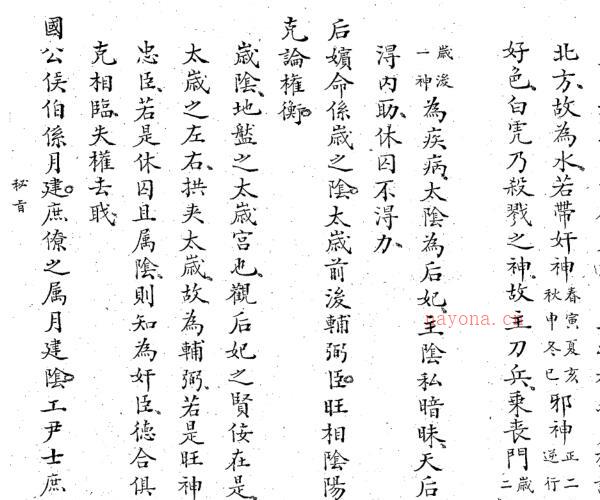 北方、故為水。若帶奸神春寅夏亥秋申冬巳邪神正二逆行
好色、白虎乃殺戮之神、故主刀兵、乘喪門歲二
歲後一神為疾病、太陰為后妃、主陰私暗昧、天后
淂內助、休囚不淂力、
后嬪命係歲之陰。太歲前後輔弼臣。旺相陰陽
克論權衡。
歲陰、地盤之太歲宮也、觀后妃之賢佞在是、
太歲之左右、拱夾太歲、故為輔弼、若是旺神
忠臣、若是休囚且属陰、則知為奸臣、德合俱
克相臨、失權去職、
國公侯伯係月建。庶僚之属月建陰。工尹士庶
秘旨
nayona.cn